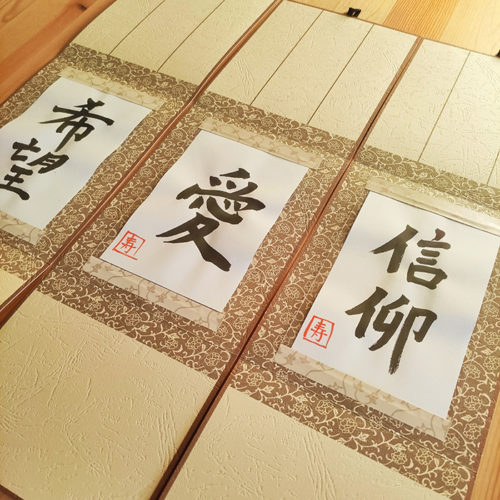 希望
愛
寿
信仰
寿